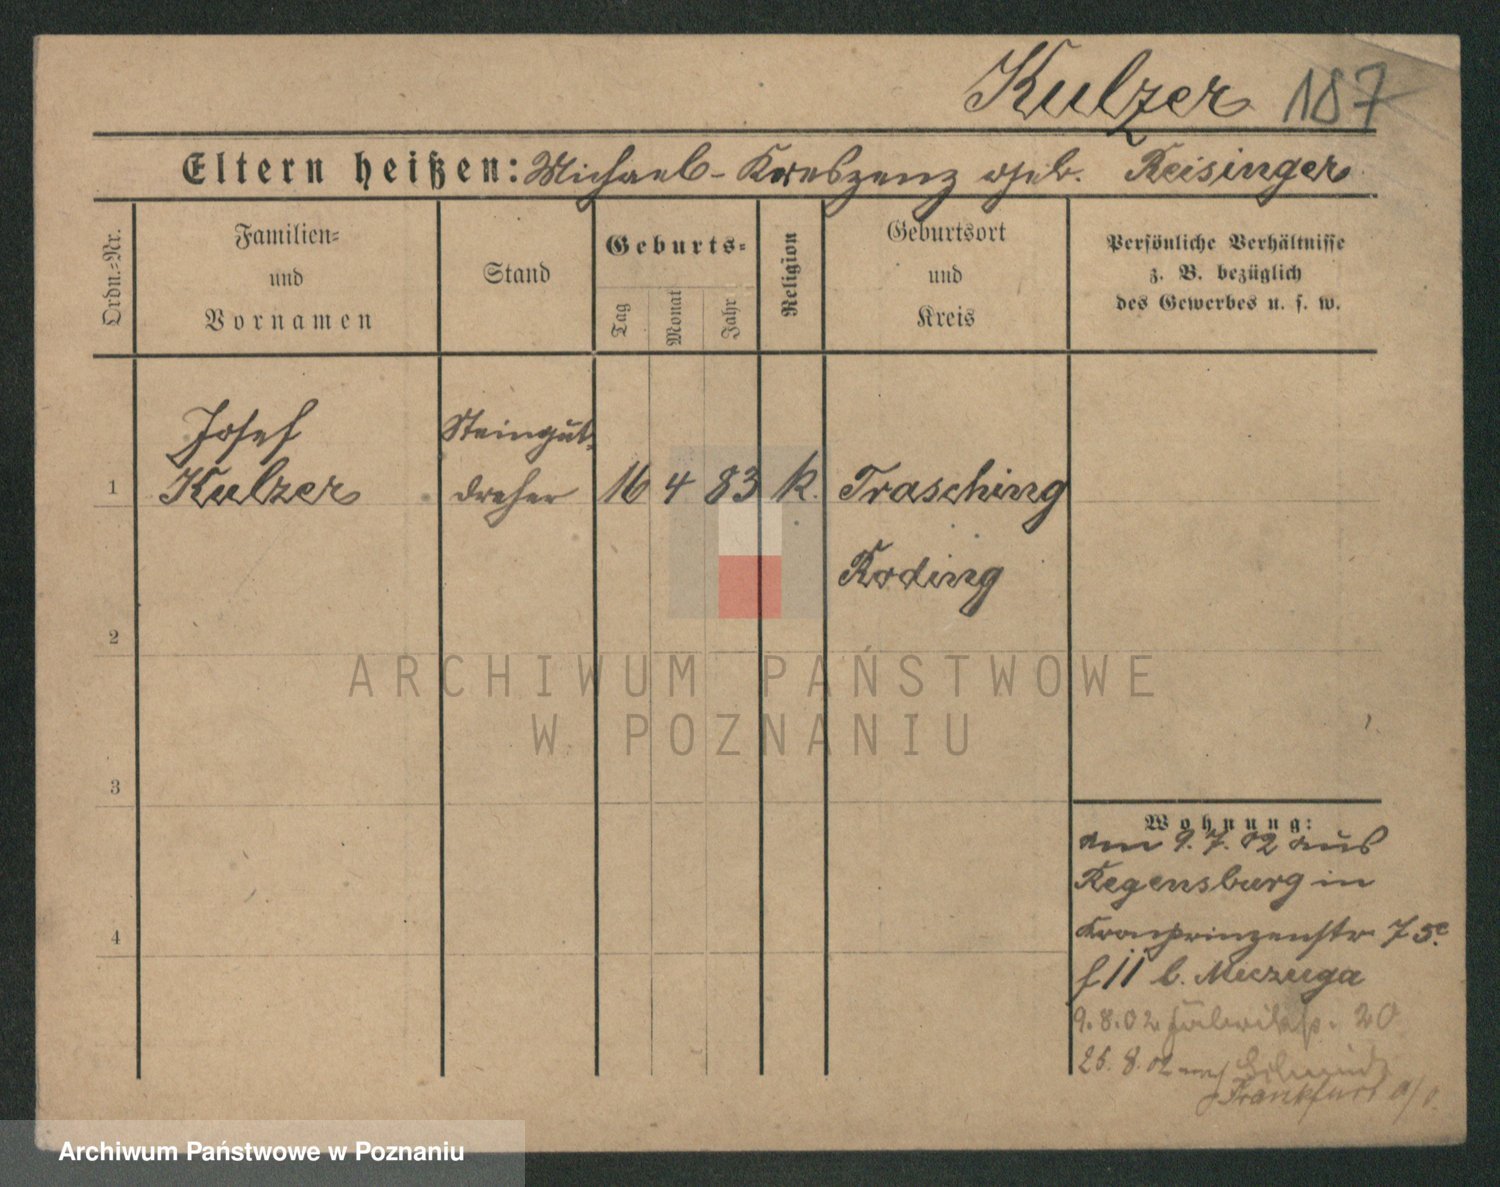 Kulzer 187
Eltern heißen: Michael - Kreszenz geb. Reisinger
Ordn.-Nr.
Familien-
und
Vornamen
Stand
Geburts-
Tag
Monat
Jahr
Religion
Geburtsort
und
Kreis
Persönliche Verhältnisse
z. B. bezüglich
des Gewerbes u. s. w.
Josef
Kulzer
Steingut-
dreher
1
16 4 83 k.
Trasching
Roding
2
3
4
ARCHIWUM PAŃSTWOWE
W POZNANIU
Wohnung:
am 9.7.02 aus
Regensburg in
Kronprinzenstr 75c
II b. Miczuga
9.8.02 20
25.8.02
Frankfurt a/O.
Archiwum Państwowe w Poznaniu